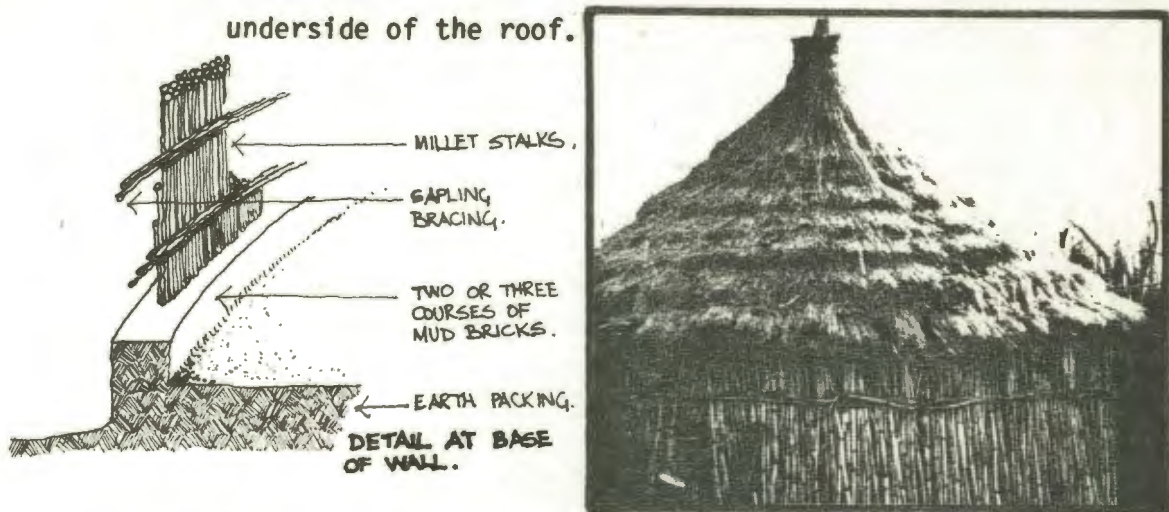 underside of the roof.
MILLET STALKS.
SAPLING
BRACING.
TWO OR THREE
COURSES OF
MUD BRICKS.
EARTH PACKING.
DETAIL AT BASE
OF WALL.